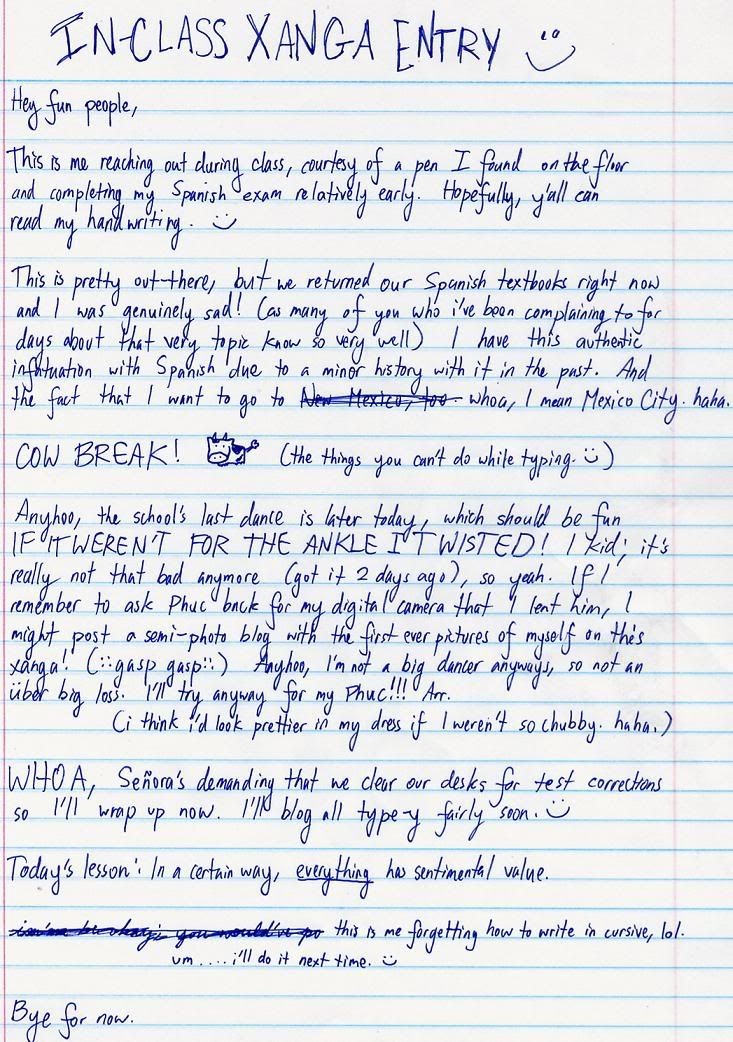 IN-CLASS XANGA ENTRY
Hey fun people,
This is me reaching out during class, courtesy of a pen I found on the floor
and completing my Spanish exam relatively early. Hopefully, y'all can
read my handwriting. :)
This is pretty out-there, but we returned our Spanish textbooks right now
and I was genuinely sad! (as many of you who i've been complaining to for
days about that very topic know so very well) I have this authentic
infatuation with Spanish due to a minor history with it in the past. And
the fact that I want to go to New Mexico, too whoa, I mean Mexico City. haha.
COW BREAK! (the things you can't do while typing. :))
Anyhoo, the school's last dance is later today, which should be fun
IF IT WEREN'T FOR THE ANKLE I TWISTED! I kid; it's
really not that bad anymore (got it 2 days ago), so yeah. If I
remember to ask Phuc back for my digital camera that I lent him, I
might post a semi-photo blog with the first ever pictures of myself on this
xanga! (::gasp gasp::) Anyhoo, I'm not a big dancer anyways, so not an
über big loss. I'll try anyway for my Phuc!!! Arr.
(i think i'd look prettier in my dress if I weren't so chubby. haha.)
WHOA, Señora's demanding that we clear our desks for test corrections
so I'll wrap up now. I'll blog all type-y fairly soon. :)
Today's lesson: In a certain way, everything has sentimental value.
this is me forgetting how to write in cursive, lol.
um.... i'll do it next time. :)
Bye for now.